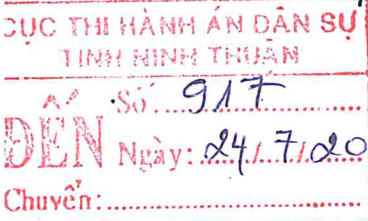 CỤC THI HÀNH ÁN DÂN SỰ
TỈNH NINH THUẬN
ĐẾN
Số: 917
Ngày: 24/7/20
Chuyển: